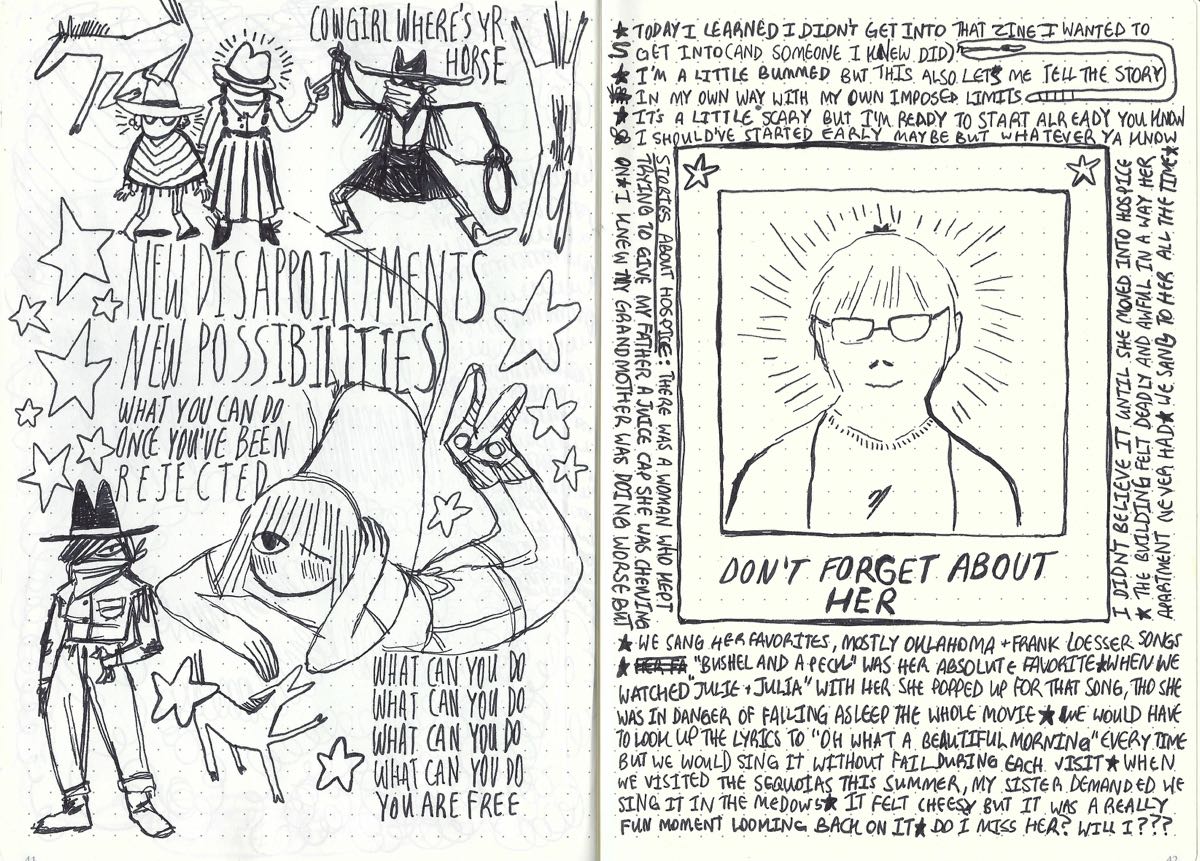 COWGIRL WHERE'S YR
HORSE
NEW DISAPPOINTMENTS
NEW POSSIBILITIES
WHAT YOU CAN DO
ONCE YOU'VE BEEN
REJECTED
WHAT CAN YOU DO
WHAT CAN YOU DO
WHAT CAN YOU DO
WHAT CAN YOU DO
WHAT CAN YOU DO
YOU ARE FREE
41
★ TODAY I LEARNED I DIDN'T GET INTO THAT ZINE I WANTED TO
GET INTO (AND SOMEONE I KNEW DID)
★ I'M A LITTLE BUMMED BUT THIS ALSO LETS ME TELL THE STORY
IN MY OWN WAY WITH MY OWN IMPOSED LIMITS
★ IT'S A LITTLE SCARY BUT I'M READY TO START ALREADY YOU KNOW
& I SHOULD'VE STARTED EARLY MAYBE BUT WHATEVER YA KNOW
STORIES ABOUT HOSPICE: THERE WAS A WOMAN WHO KEPT
TRYING TO GIVE MY FATHER A JUICE CAP SHE WAS CHEWING
ON ★ I KNEW MY GRANDMOTHER WAS DOING WORSE BUT
I DIDN'T BELIEVE IT UNTIL SHE MOVED INTO HOSPICE
★ THE BUILDING FELT DEADLY AND AWFUL IN A WAY HER
APARTMENT NEVER HAD ★ WE SANG TO HER ALL THE TIME ★
DON'T FORGET ABOUT
HER
★ WE SANG HER FAVORITES, MOSTLY OKLAHOMA + FRANK LOESSER SONGS
★ "BUSHEL AND A PECK" WAS HER ABSOLUTE FAVORITE ★ WHEN WE
WATCHED "JULIE + JULIA" WITH HER SHE POPPED UP FOR THAT SONG, THO SHE
WAS IN DANGER OF FALLING ASLEEP THE WHOLE MOVIE ★ WE WOULD HAVE
TO LOOK UP THE LYRICS TO "OH WHAT A BEAUTIFUL MORNING" EVERY TIME
BUT WE WOULD SING IT WITHOUT FAIL DURING EACH VISIT ★ WHEN
WE VISITED THE SEQUOIAS THIS SUMMER, MY SISTER DEMANDED WE
SING IT IN THE MEDOWS ★ IT FELT CHEESY BUT IT WAS A REALLY
FUN MOMENT LOOKING BACK ON IT ★ DO I MISS HER? WILL I???
42